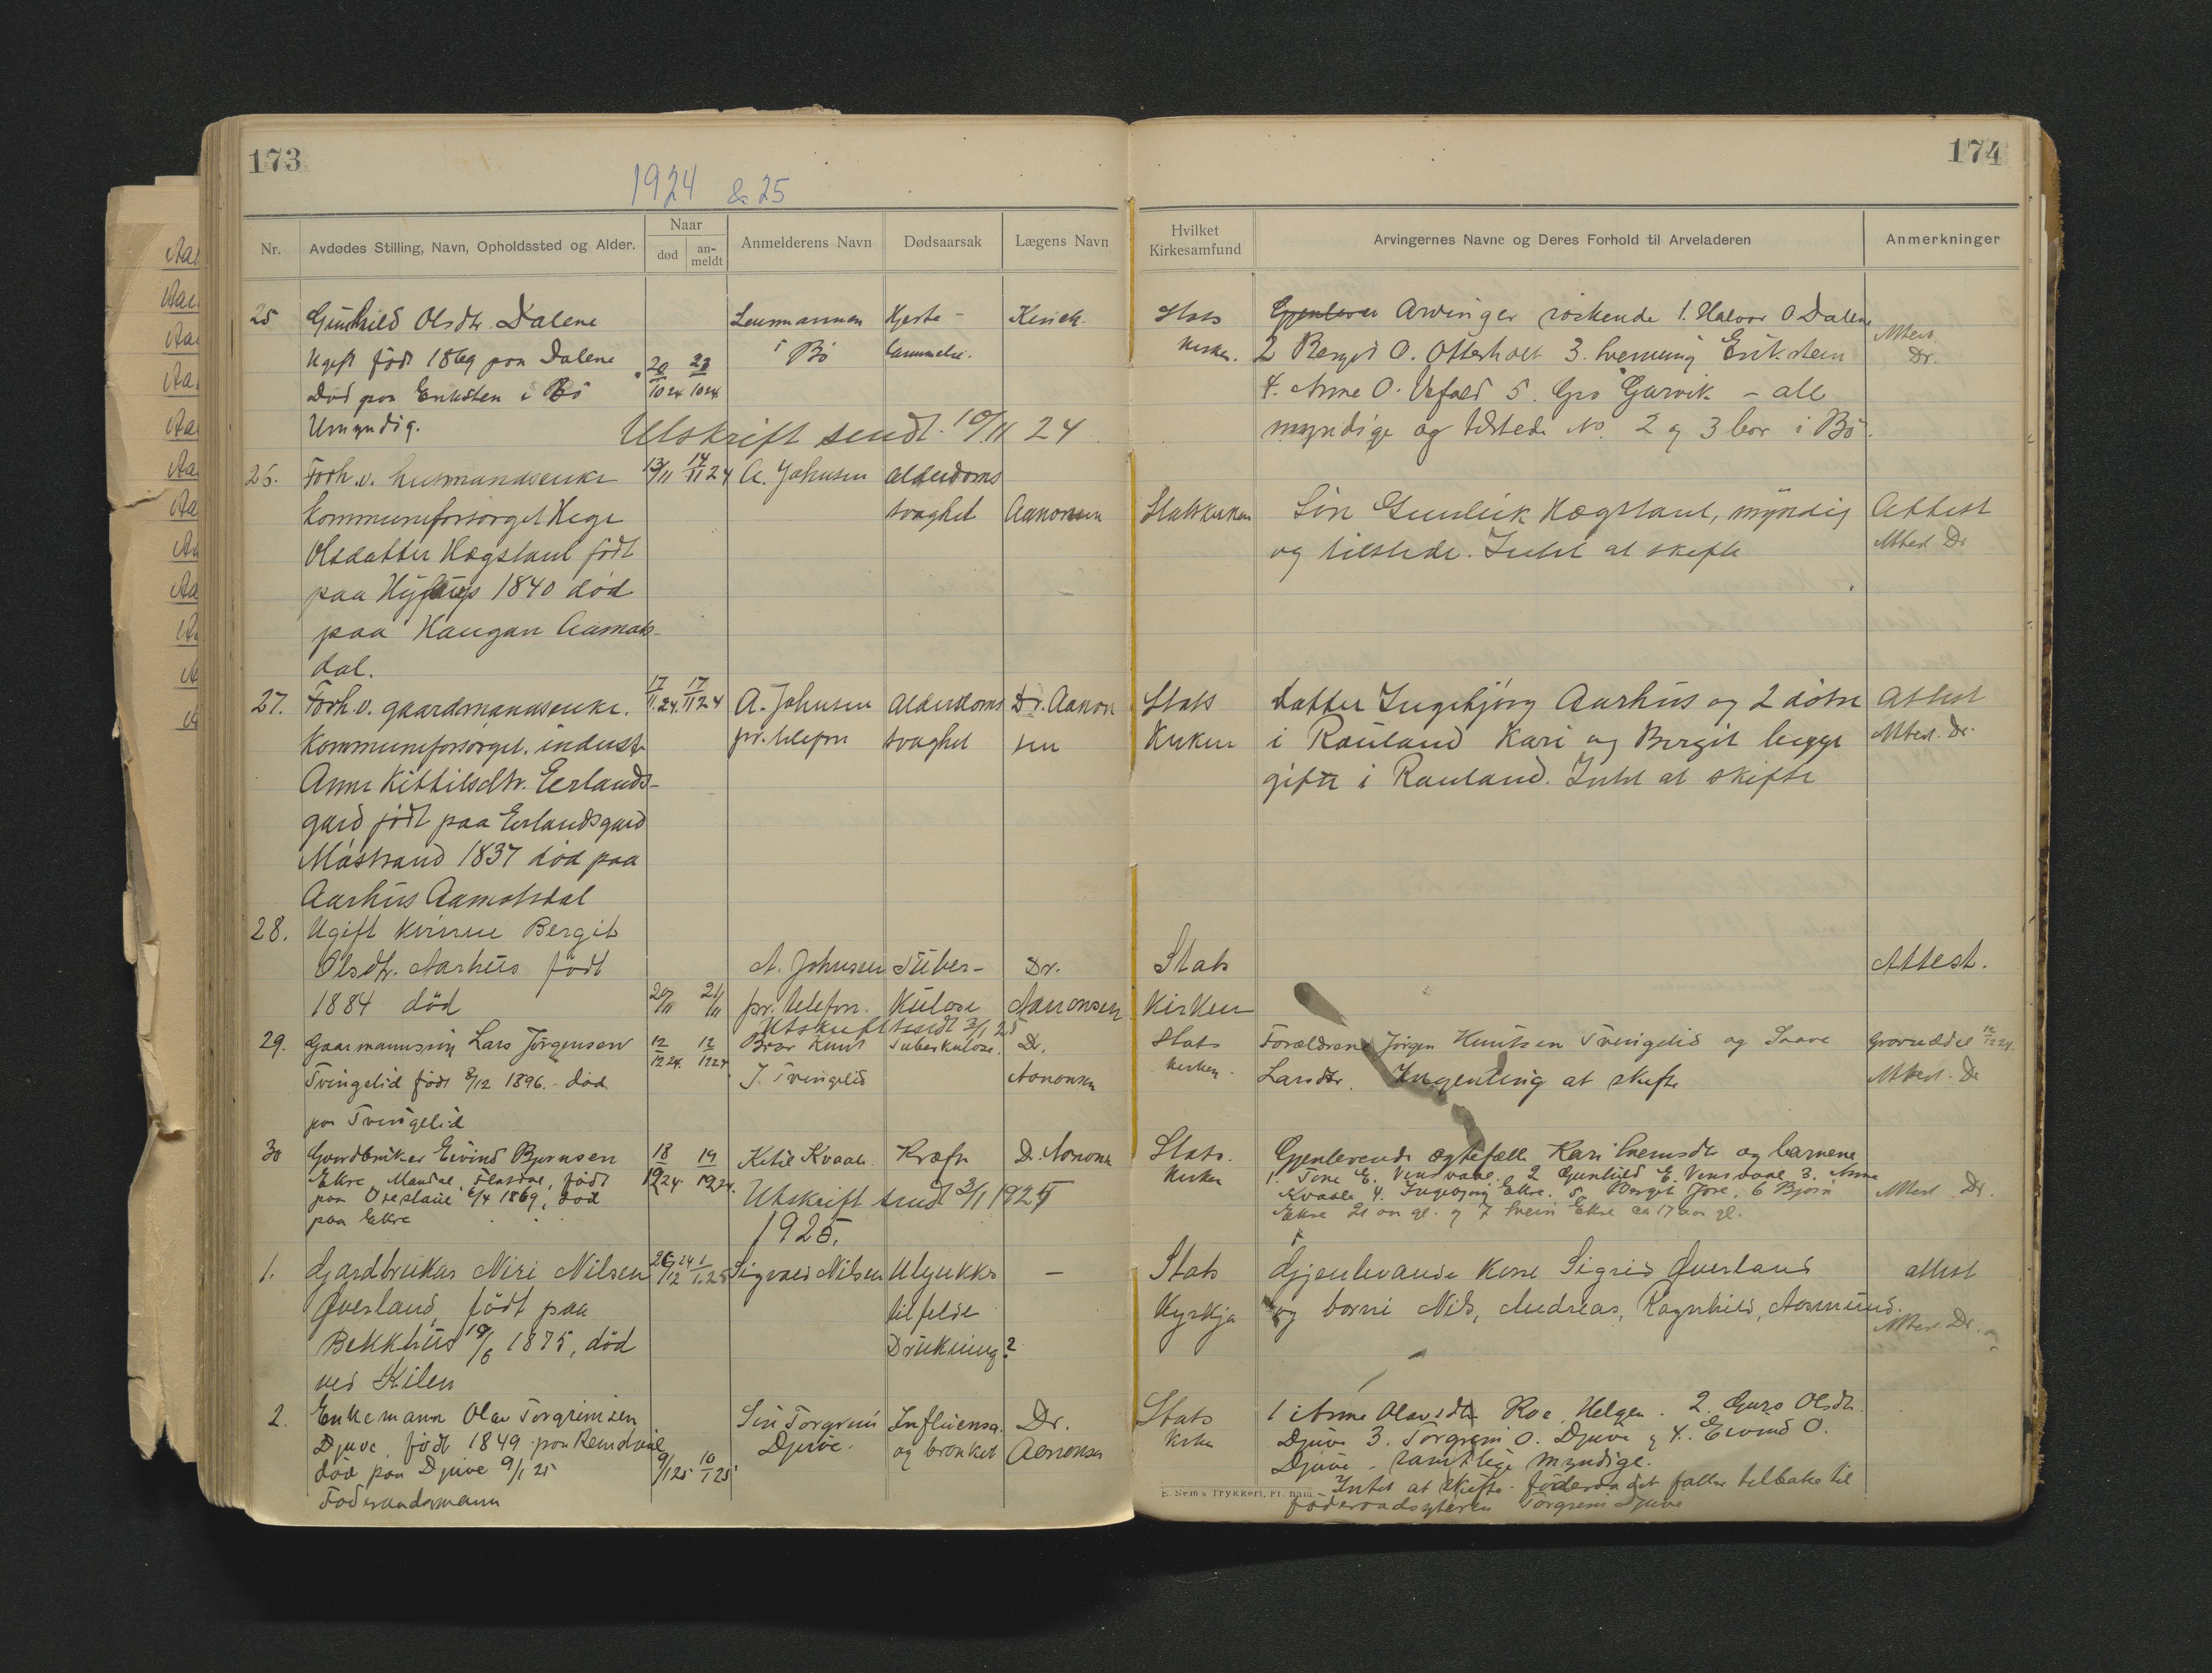 173
1924 & 25
Nr.
Avdødes Stilling, Navn, Opholdssted og Alder.
Naar
død
an-
meldt
Anmelderens Navn
Dødsaarsak
Lægens Navn
25 Gunhild Olsdtr. Dalene
Ugift født 1869 paa Dalene
Død paa Eriksten i Bö
Umyndig.
20/10 24 23/10 24
Lensmannen
i Bö
Hjerte-
lammelse.
Utskrift sendt 10/11 24
26. Forh.v. husmandsenke
kommuneforsörget Hege
Olsdatter Hægstaul födt
paa 1840 död
paa Haugan Aamots-
dal.
13/11 14/11 24
A. Johnsen
alderdoms
svaghet
Aanonsen
27. Forh.v. gaardmandsenke.
Kommuneforsörget. inderst
Anne Kittilsdtr. Eerlands-
gard födt paa Erlandsgard
Måstrand 1837 död paa
Aarhus Aamotsdal
17/11.24. 17/11 24
A. Johnsen
pr. telefon
Alderdoms
svaghet
Dr. Aanon
sen
28. Ugift kvinne Bergit
Olsdtr. Aarhus födt
1884 död
20/11 21/11
A. Johnsen
pr. telefon.
Tuber-
kulose
Dr.
Aanonsen
Utskrift sendt 3/1 25
29. Lars Jörgensen
Tveingelid födt 8/12 1896. - död
paa Tveingelid
12/12 24. 12/12 24
Bror Knut
J. Tveingelid
Tuberkulose.
Dr.
Aanonsen
30 Gardbruker Eivind Bjørnsen
Ekre, Mandal, Flatdal, født
paa 1869, död
paa Ekre
18/12 24. 19/12 24.
Ketil Kvaale.
Kræft
Dr. Aanonsen
Utskrift sendt 3/1 1925
1925.
1. Gardbrukar Niri Nilsen
Överland, födt paa
Bekkhus 10/6 1875, död
ved Kilen
26/12 24 1/1.25
Sigvald Nilsen
Ulykks
tilfelde
Drukning?
—
2. Enkemann Olav Torgrimsen
Djuve, födt 1849 paa
död paa Djuve 9/1 25
Föderaadsmann
9/1 25 10/1 25
Sön Torgrim
Djuve.
Influensa
og bronkit
Dr.
Aanonsen
174
Hvilket
Kirkesamfund
Arvingernes Navne og Deres Forhold til Arveladeren
Anmerkninger
Stats
kirken.
Gjenlever Arvinger söskende 1. Halvor O Dalene
2 Bergit O. Otterholt 3. Sveinung Erikstein
4. Anne O. Vefald 5. Gro Garvik - alle
myndige og tilstede No. 2 og 3 bor i Bö.
Attest.
Dr.
Statskirken
Sön Gunleik Hægstaul, myndig
og tilstede. Intet at skifte
Attest
Attest Dr
Stats
Kirken
Datter Ingebjörg Aarhus og 2 dötre
i Rauland Kari og Bergit begge
gifte i Rauland. Intet at skifte
Attest
Attest. Dr.
Stats
Kirken
Attest.
Stats
kirken.
Forældrene Jörgen Knutsen Tveingelid og Saave
Larsdtr. Ingenting at skifte
12/12 24.
Attest. Dr
Stats.
kirken
Gjenlevende ægtefælle Kari Sveinsdtr og barnene
1. Tone E. 2 Gunhild E. 3. Anne
Kvaale 4. Ingebjörg Ekre. 5. Bergit Jore, 6 Björn
Ekre 21 aar gl. og 7 Svein Ekre ca 17 aar gl.
Attest Dr.
Stats
Kyrkja
Gjenlevande kone Sigrid Överland
og borni Nils, Andreas, Ragnhild, Aasmund.
attest
Attest. Dr.
Stats
kirken
1 Anne Olavsdtr Roe, Helgen. 2. Guro Olsdtr.
Djuve 3. Torgrim O. Djuve og 4. Eivind O.
Djuve - samtlige myndige.
Intet at skifte. föderaadet faller tilbake til
föderaadsyteren Torgrim Djuve
E. Sem's Trykkeri, Fr. hald.